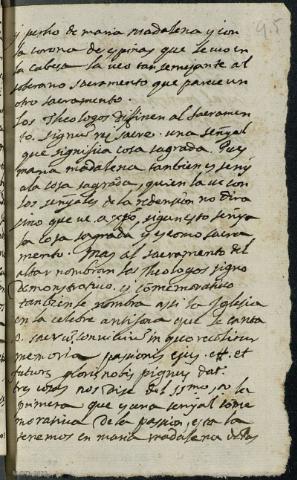 y pecho de maria madalena y con
la corona de espinas que le veo en
la cabesa la veo tan semejante al
soberano sacramento que parece un
otro sacramento.
los Theologos difinen al Sacramen
to. signum rei sacre. una señal
que significa cosa sagrada. Pues
maria madalena tambien es señ
a la cosa sagrada, quien la ve con
los señales de la redension no dira
sino que ve a xpo,
la cosa sagrada y es como sacra
mento. mas al sacramento del
altar nombran los theologos signo
demonstrativo. y comemorativo
tambien le nombra assi la Iglesia
en la celebre antifona que le canta
o sacrum convivium in quo recolitur
memoria pasionis ejus. et
future glorie nobis pignus dat.
tres cosas nos dise del ssmo. o la
primera que es una señal come
morativa de la passion, esta la
tenemos en maria madalena
95